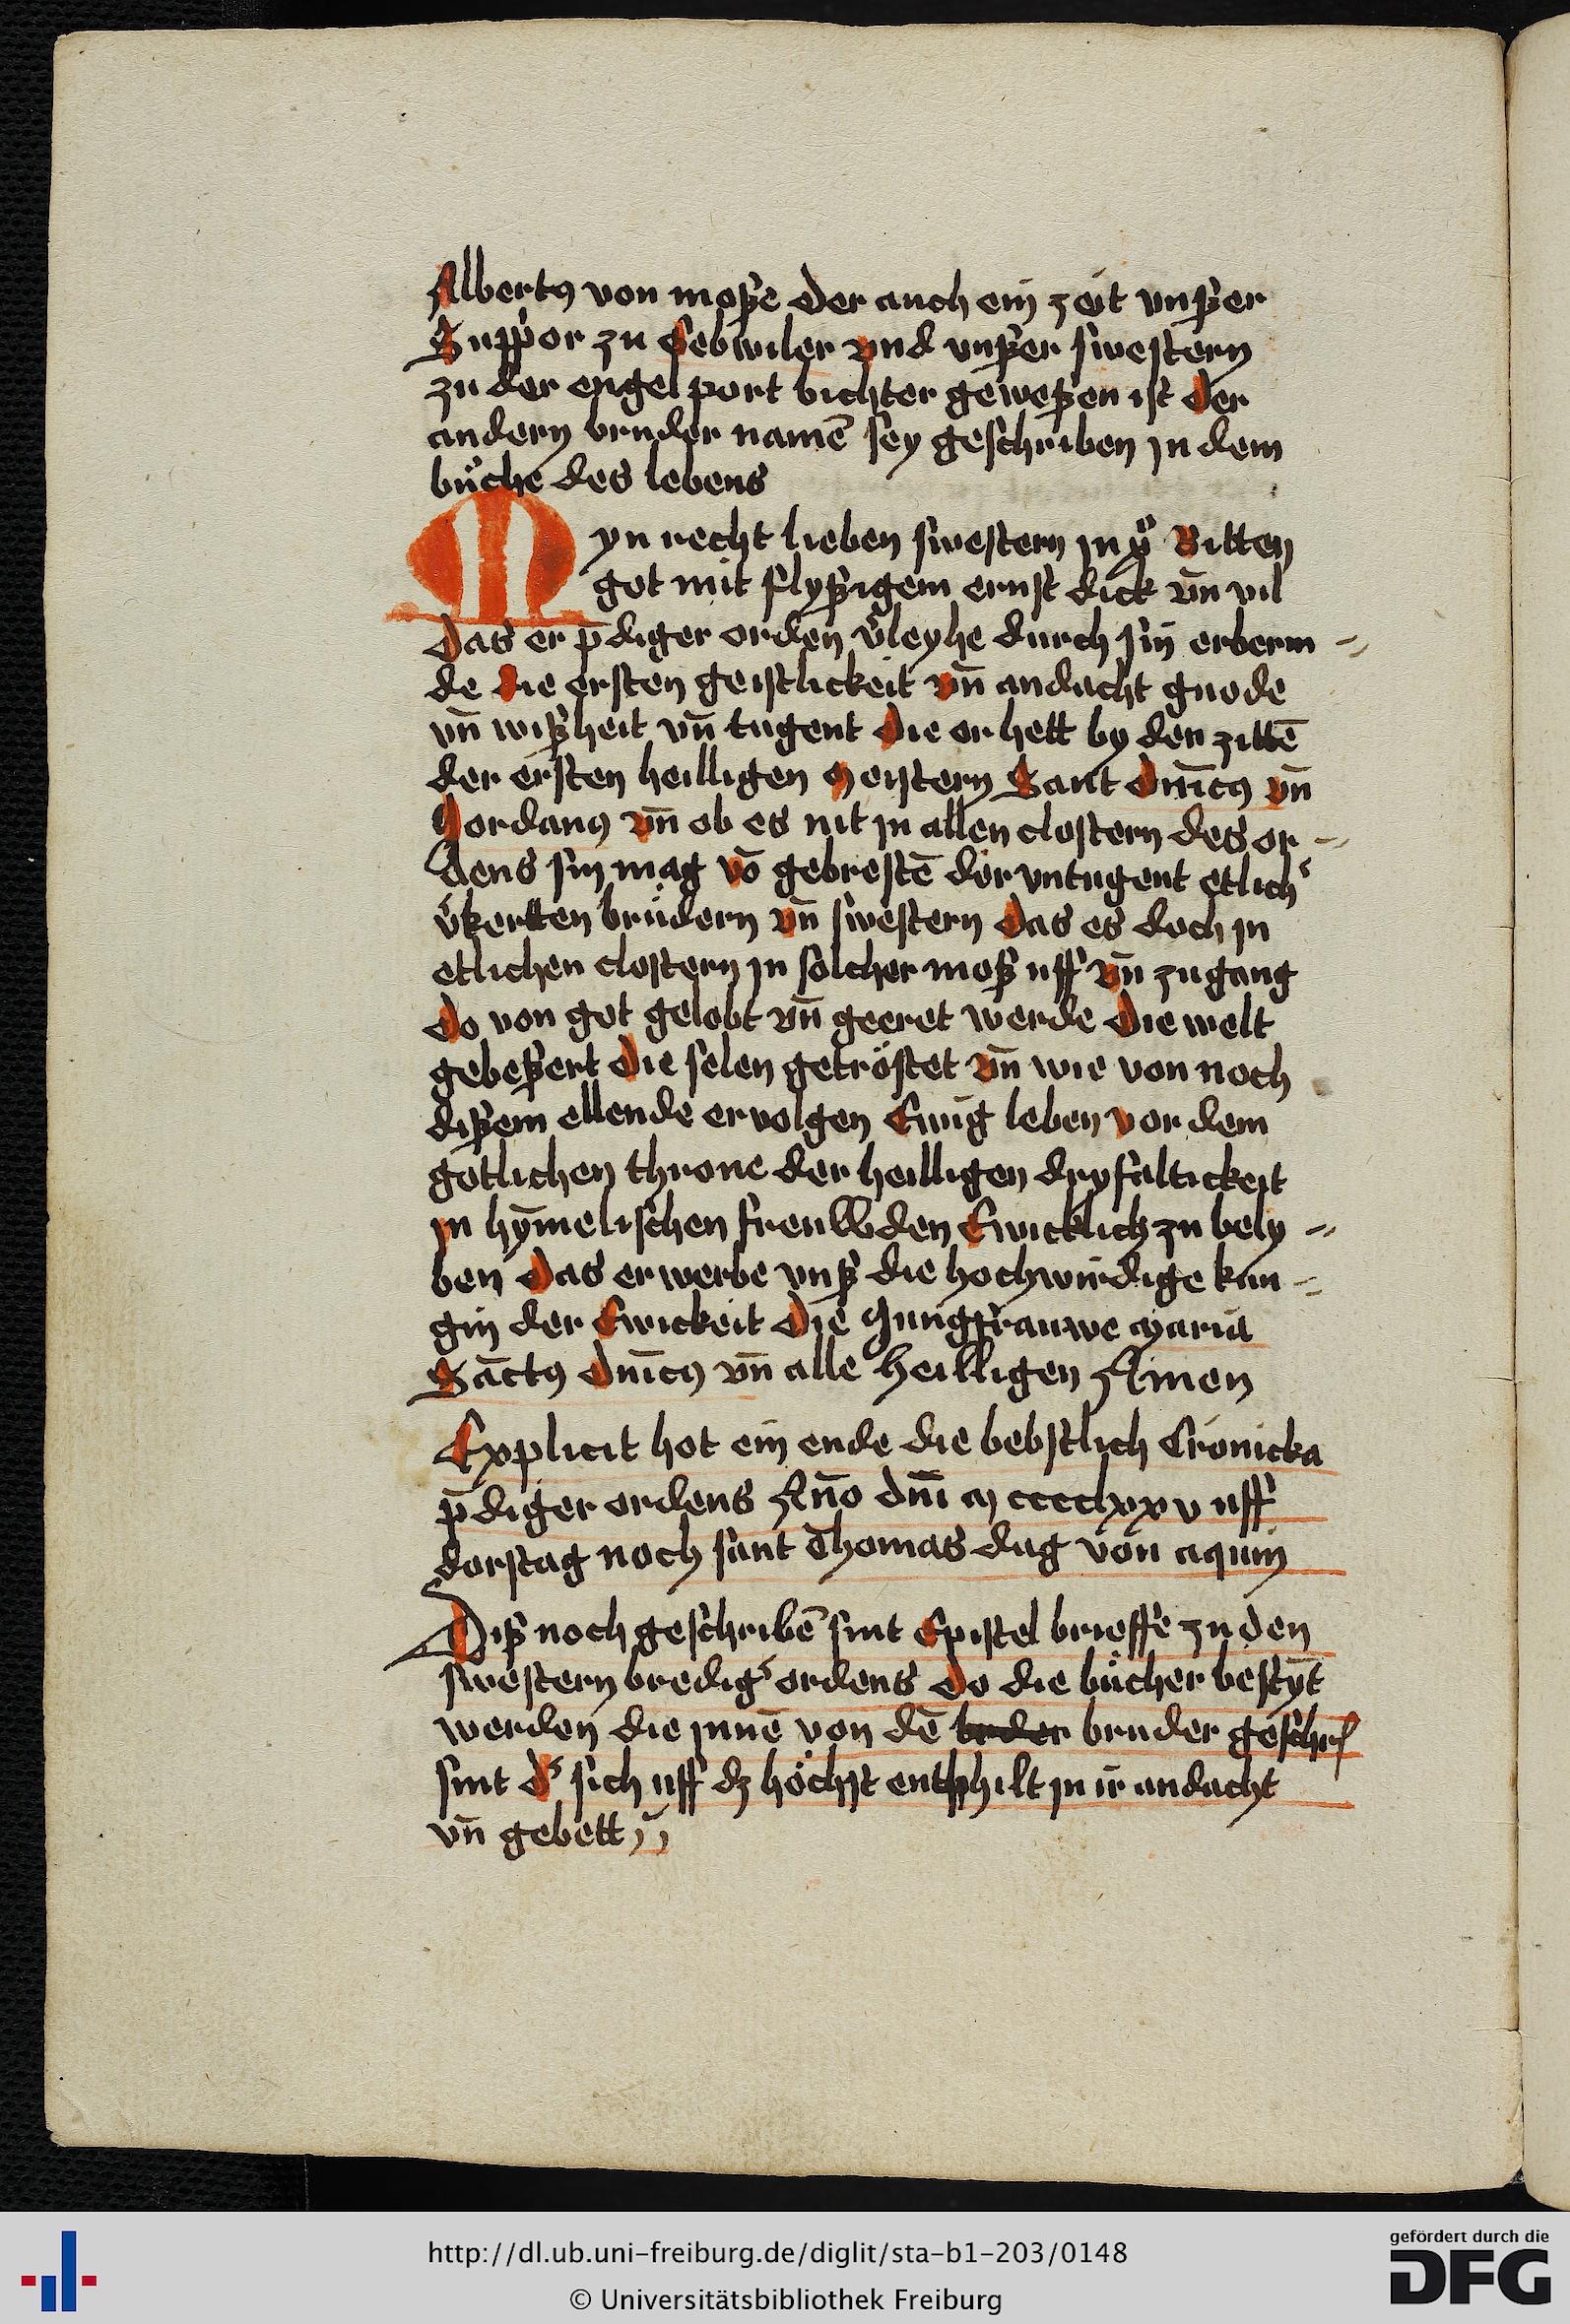 Albertꝯ von moße der auch ein zeit vnßer
Suppor zu Gebwiler vnd vnßer swestern
zu der engel port bichter geweßen ist der
andern bruder namē sey geschriben jn dem
bůche des lebens
Myn recht lieben swestern jn xͦ Bitten
got mit flyßigem ernst dick vn̄ vil
das er p̄diger orden v͛leyhe durch sin erberm-
de die ersten geistlickeit vn̄ andacht gnode
vn̄ wißheit vn̄ tugent die er hett by den zittē
der ersten heilligen Meistern Sant dnīcꝯ vn̄
Jordanꝯ vn̄ ob es nit jn allen clostern des or-
dens sin mag vō gebrestē der vntugent etlich͛
v͛kertten brüdern vn̄ swestern das es doch jn
etlichen clostern jn solcher moß uff vn̄ zu gang
do von got gelobt vn̄ geeret werde die welt
gebeßert die selen getröstet vn̄ wie von noch
dißem ellende ervolgen Ewig leben vor dem
gotlichen throne der heilligen dryfaltickeit
jn hȳmelischen freuwden Ewicklich zu bely-
ben das erwerbe vnß die hochwirdige kün-
gin der Ewickeit die Jungfrauwe Maria
Sāctꝯ dnīcꝯ vn̄ alle heilligen Amen
Explicit hot ein ende die bebstlich Cronicka
p̄diger ordens An̄o dnī M cccclxxv uff
dorstag noch sant Thomas dag von aquin
Diß noch geschribē sint Epistel brieffe zu den
swestern bredig͛ ordens do die bücher bestȳt
werden die jnnē von dē bruder geschr
sint d͛ sich uff dz höchst enthhilt jn ir andacht
vn̄ gebett
http://dl.ub.uni-freiburg.de/diglit/sta-b1-203/0148
© Universitätsbibliothek Freiburg
gefördert durch die
DFG